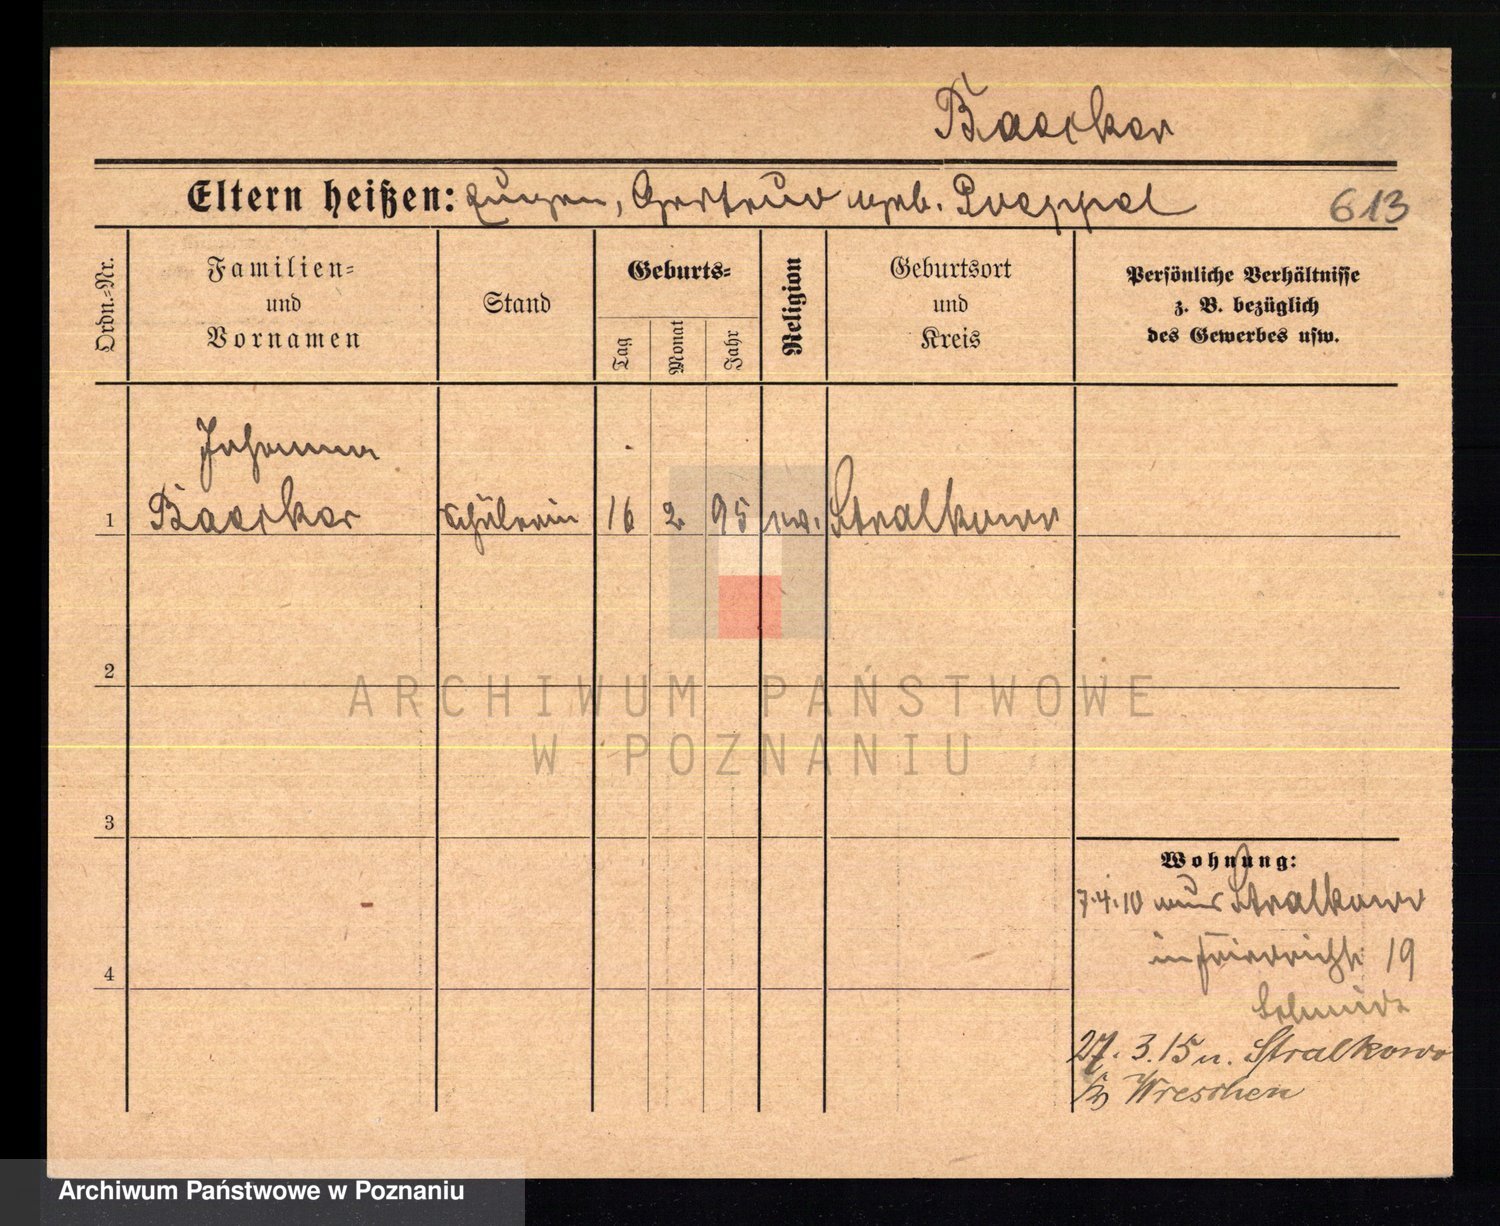 Baecker
Eltern heißen: Eugen, Gertrud geb. Poeppel
613
Ordn.-Nr.
Familien-
und
Vornamen
Stand
Geburts-
Tag
Monat
Jahr
Religion
Geburtsort
und
Kreis
Persönliche Verhältnisse
z. B. bezüglich
des Gewerbes usw.
Johanna
1 Baecker Schülerin 16 2 95 ev. Stralkowo
2
3
4
Wohnung:
7.4.10 aus Stralkowo
in Friedrichst 19
27.3.15 n. Stralkowo
Kr Wreschen
ARCHIWUM PAŃSTWOWE
W POZNANIU
Archiwum Państwowe w Poznaniu